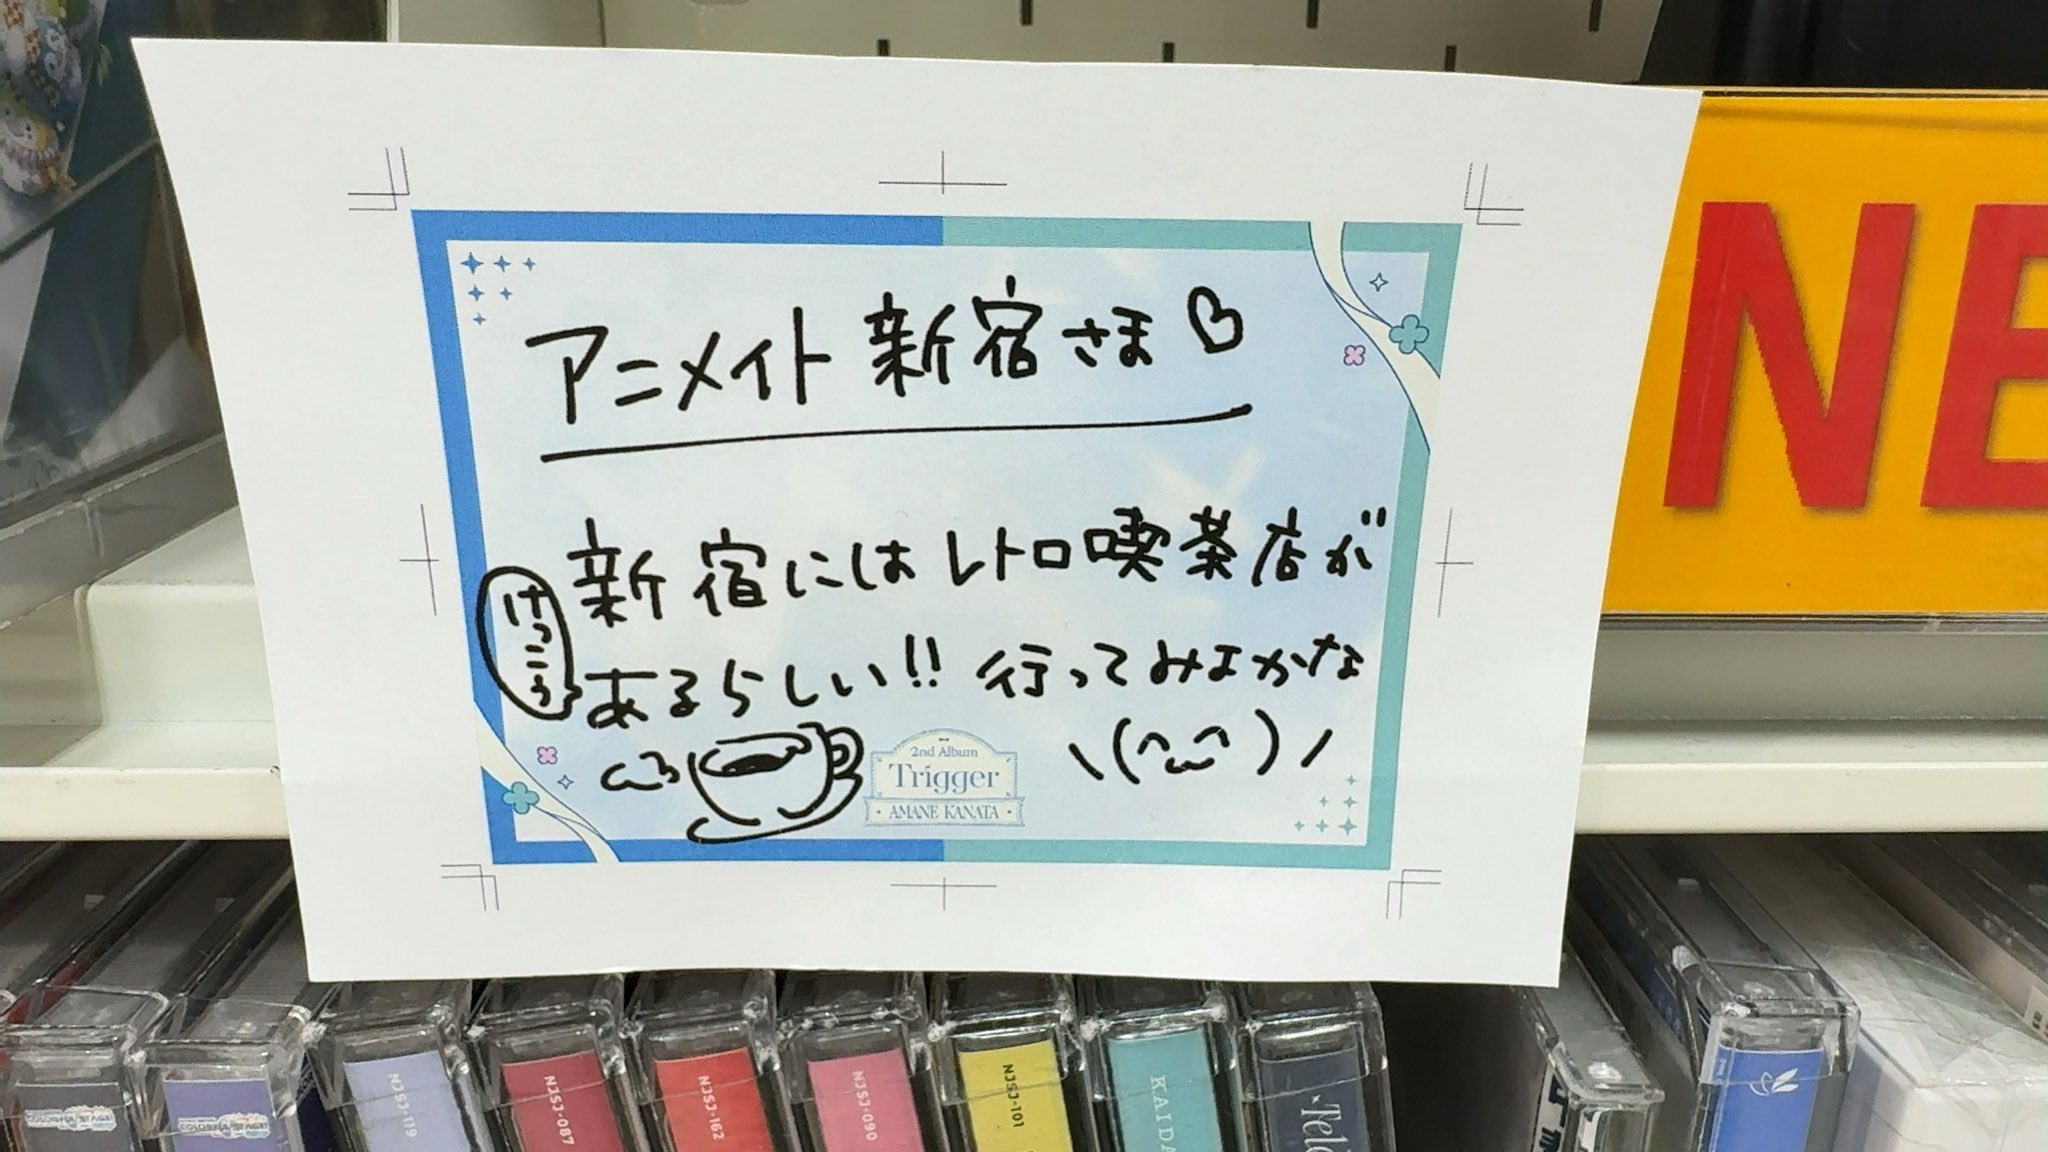 アニメイト新宿さま♡
新宿にはレトロ喫茶店が
けっこう
あるらしい!! 行ってみよかな
\(^ω^)/
2nd Album
Trigger
AMANE KANATA
NE
NJSJ-119
NJSJ-087
NJSJ-162
NJSJ-090
NJSJ-101
KAIDA